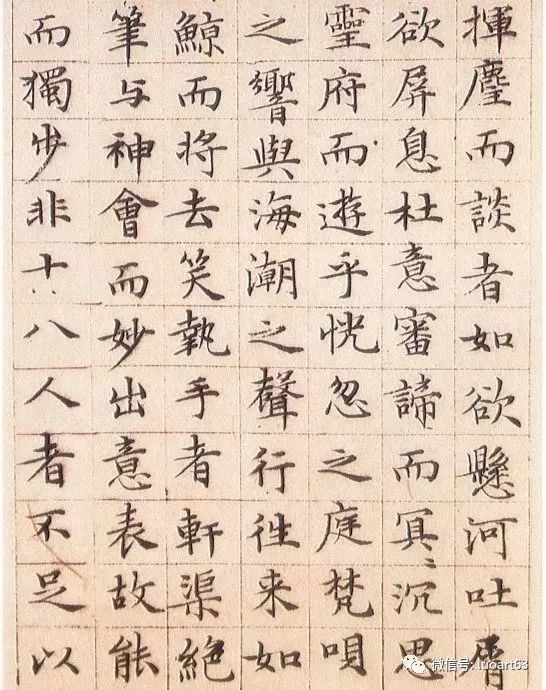 揮麈而談者如欲懸河吐屑
欲屏息杜意審諦而冥〻沉思
靈府而遊乎恍忽之庭梵唄
之響與海潮之聲行往来如
鯨而将去笑執手者軒渠絶
筆与神會而妙出意表故能
而獨步非十八人者不足以
微信号: luoart63